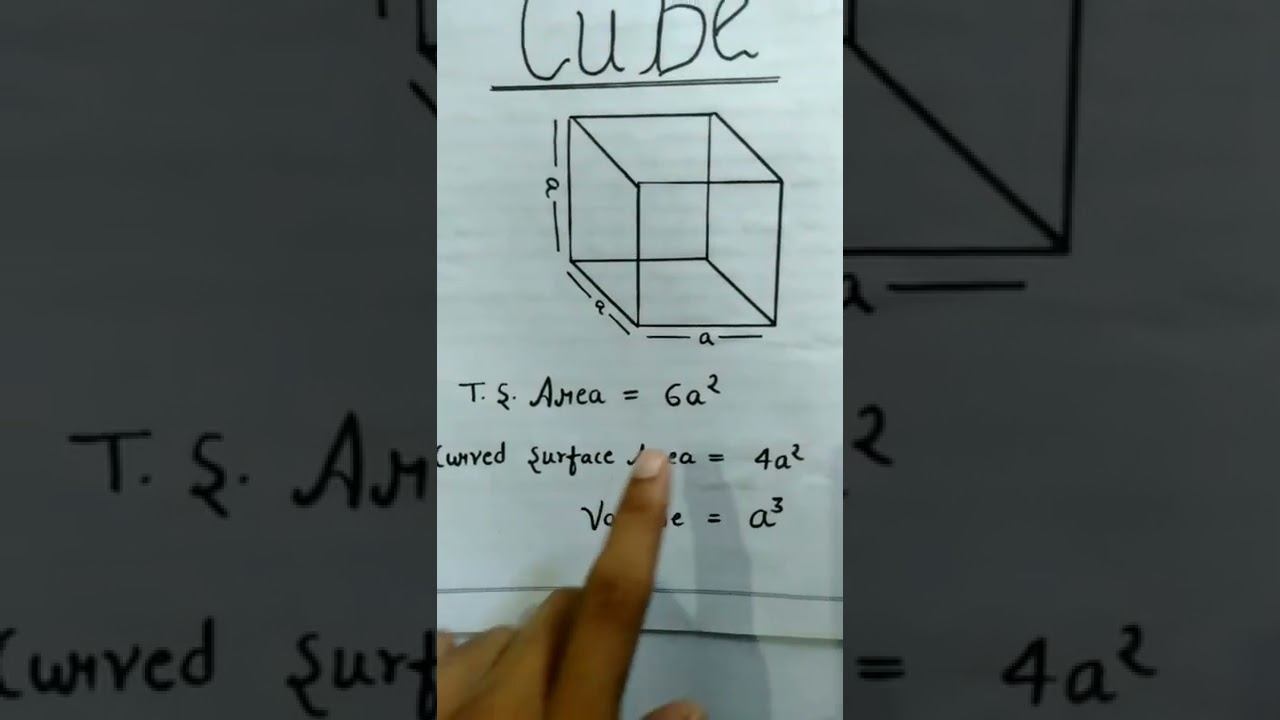 Cube
a
a
a
T. S. Area = 6a²
Curved Surface Area = 4a²
Volume = a³